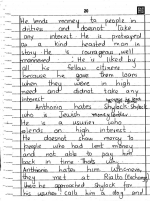 20
He lends money to people in
distress and doesnot take
any interest. He is portrayed
as a kind hearted man in
story. He is courageous, well
mannered. He is liked by
all his fellow citizens
because he gave them loan
when they were in high
need and didnot take any
interest.
Anthonio hates Shylock. Shylock
who is Jewish moneylender.
He is a usurier who
lends on high interest.
He doesnot show mercy to
people who had lent money
and not able to pay it
back in time. That's why
Anthonio hates him. Whenever
they met in Rialto (Exchange)
then he approached Shylock for
his usury. Calls him a dog and